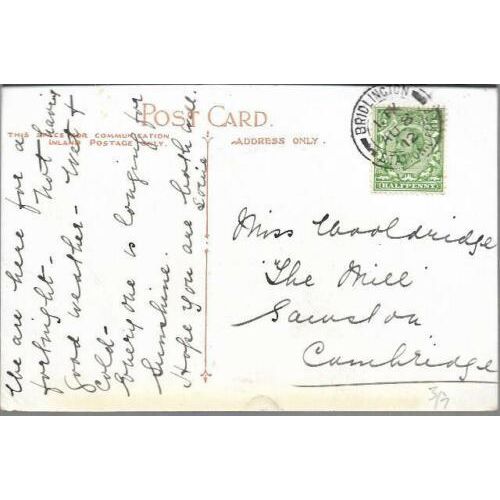 POST CARD.
THIS SPACE FOR COMMUNICATION
INLAND POSTAGE ONLY.
ADDRESS ONLY.
We are here for a
fortnight - Not having
Good weather - Wet &
Cold -
Every one is longing for
Sunshine.
Hope you are both well.
BRIDLINGTON
12
HALFPENNY
Miss Wooldridge
"The Mill"
Sawston
Cambridge